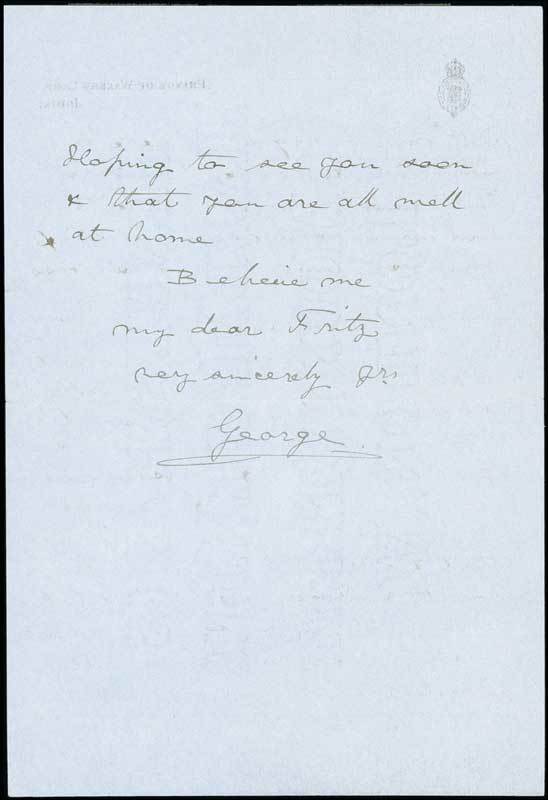 Hoping to see you soon
& that you are all well
at home
Believe me
my dear Fritz
very sincerely yrs
George.